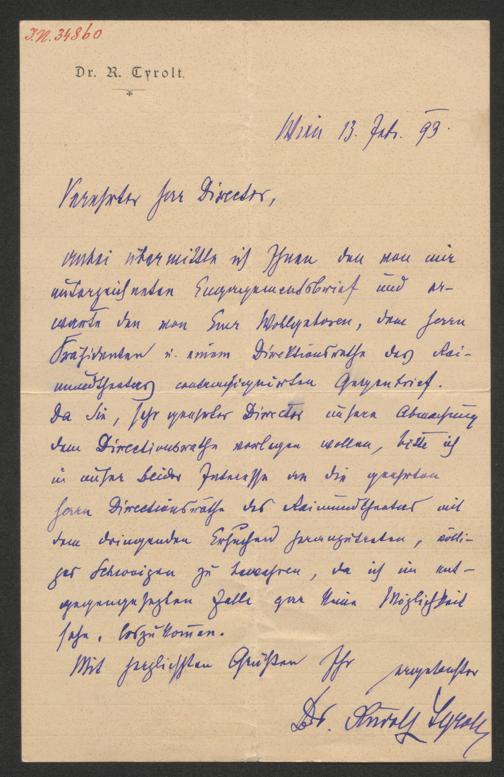 J.N. 34860
Dr. R. Tyrolt.
Wien 13. Febr. 93.
Verehrter Herr Director,
anbei übermittle ich Ihnen den von mir
unterzeichneten Engagementsbrief und er-
warte den von Euer Wohlgeboren, dem Herrn
Präsidenten u. einem Direktionsrathe des Rai-
mundtheaters contrasignirten Gegenbrief.
Da Sie, sehr geehrter Director unsere Abmachung
dem Directionsrathe vorlegen wollen, bitte ich
in unser Beider Interesse an die geehrten
Herrn Directionsräthe des Raimundtheaters mit
dem dringenden Ersuchen heranzutreten, völli-
ges Schweigen zu bewahren, da ich im ent-
gegengesetzten Falle gar keine Möglichkeit
sehe, loszukommen.
Mit herzlichsten Grüßen Ihr ergebenster
Dr. Rudolf Tyrolt